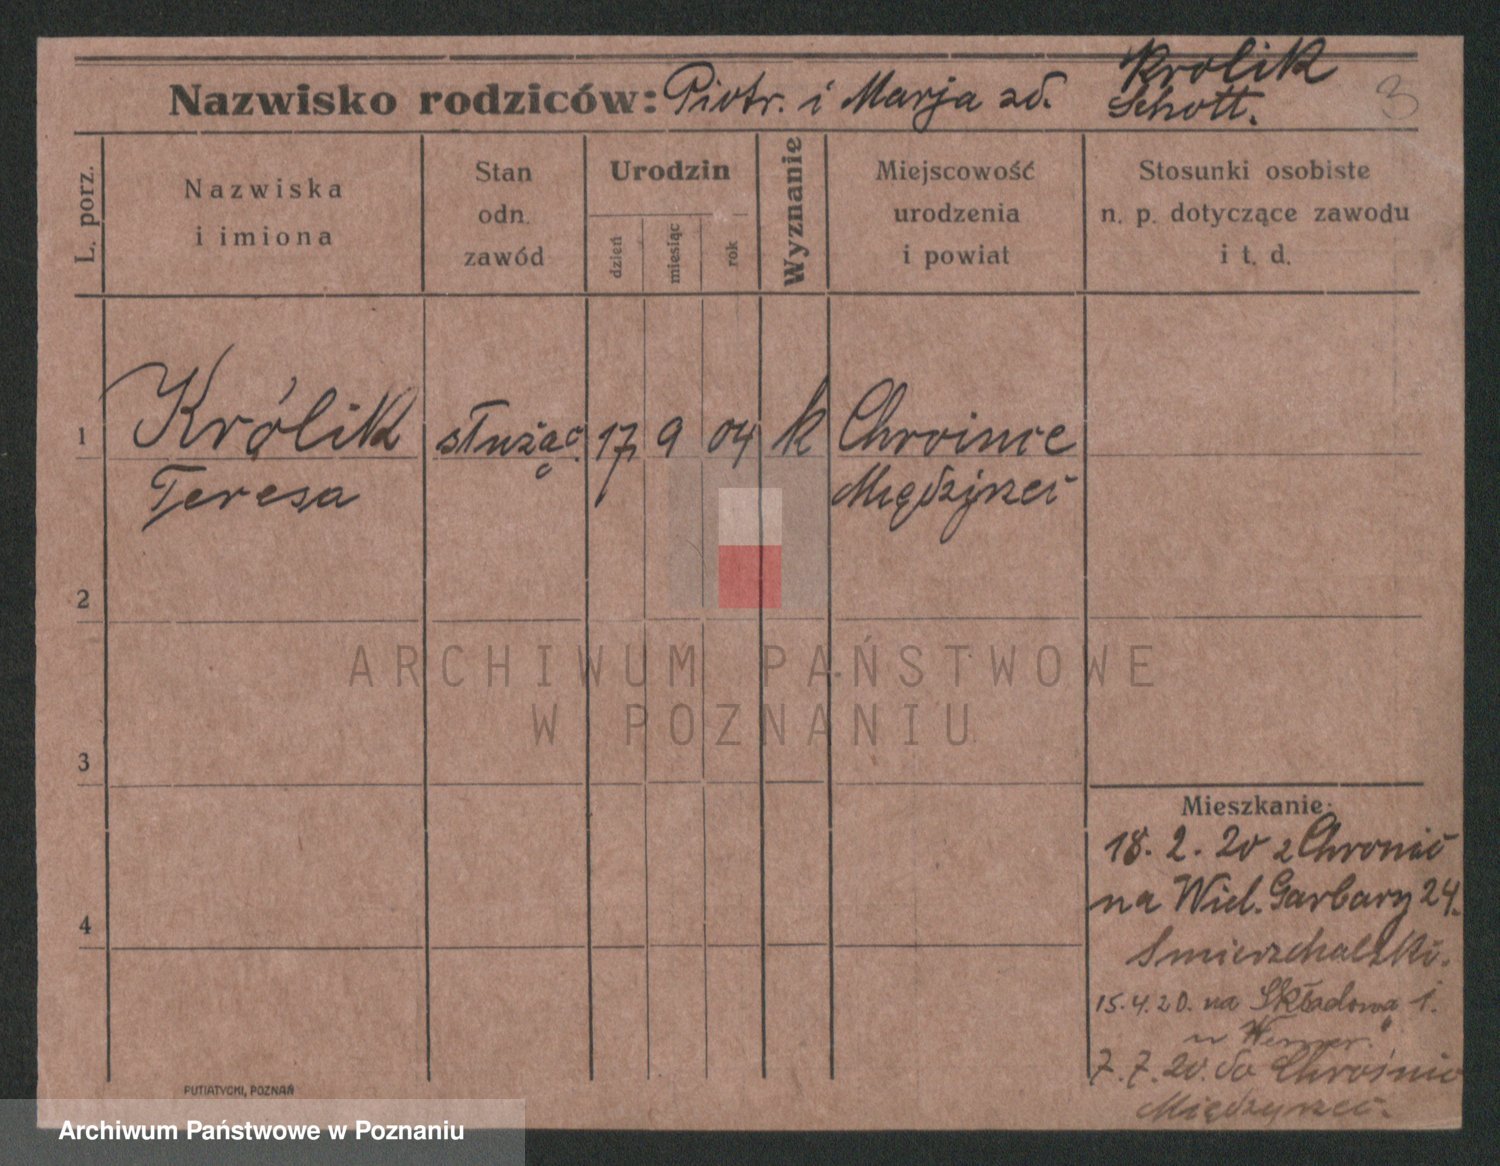 Królik
Nazwisko rodziców: Piotr. i Marja zd. Schott.
3
L. porz.
Nazwiska
i imiona
Stan
odn.
zawód
Urodzin
dzień
miesiąc
rok
Wyznanie
Miejscowość
urodzenia
i powiat
Stosunki osobiste
n. p. dotyczące zawodu
i t. d.
1
Królik
Teresa
służąc
17 9 04 k
Chroinie
Międzyrzeć
2
3
4
Mieszkanie:
18. 2. 20 z Chronic
na Wiel. Garbary 24.
15.4.20. na Składowa 1.
7. 7. 20. do Chrośnic
Międzyrzeć.
PUTIATYCKI, POZNAŃ
ARCHIWUM PAŃSTWOWE
W POZNANIU
Archiwum Państwowe w Poznaniu